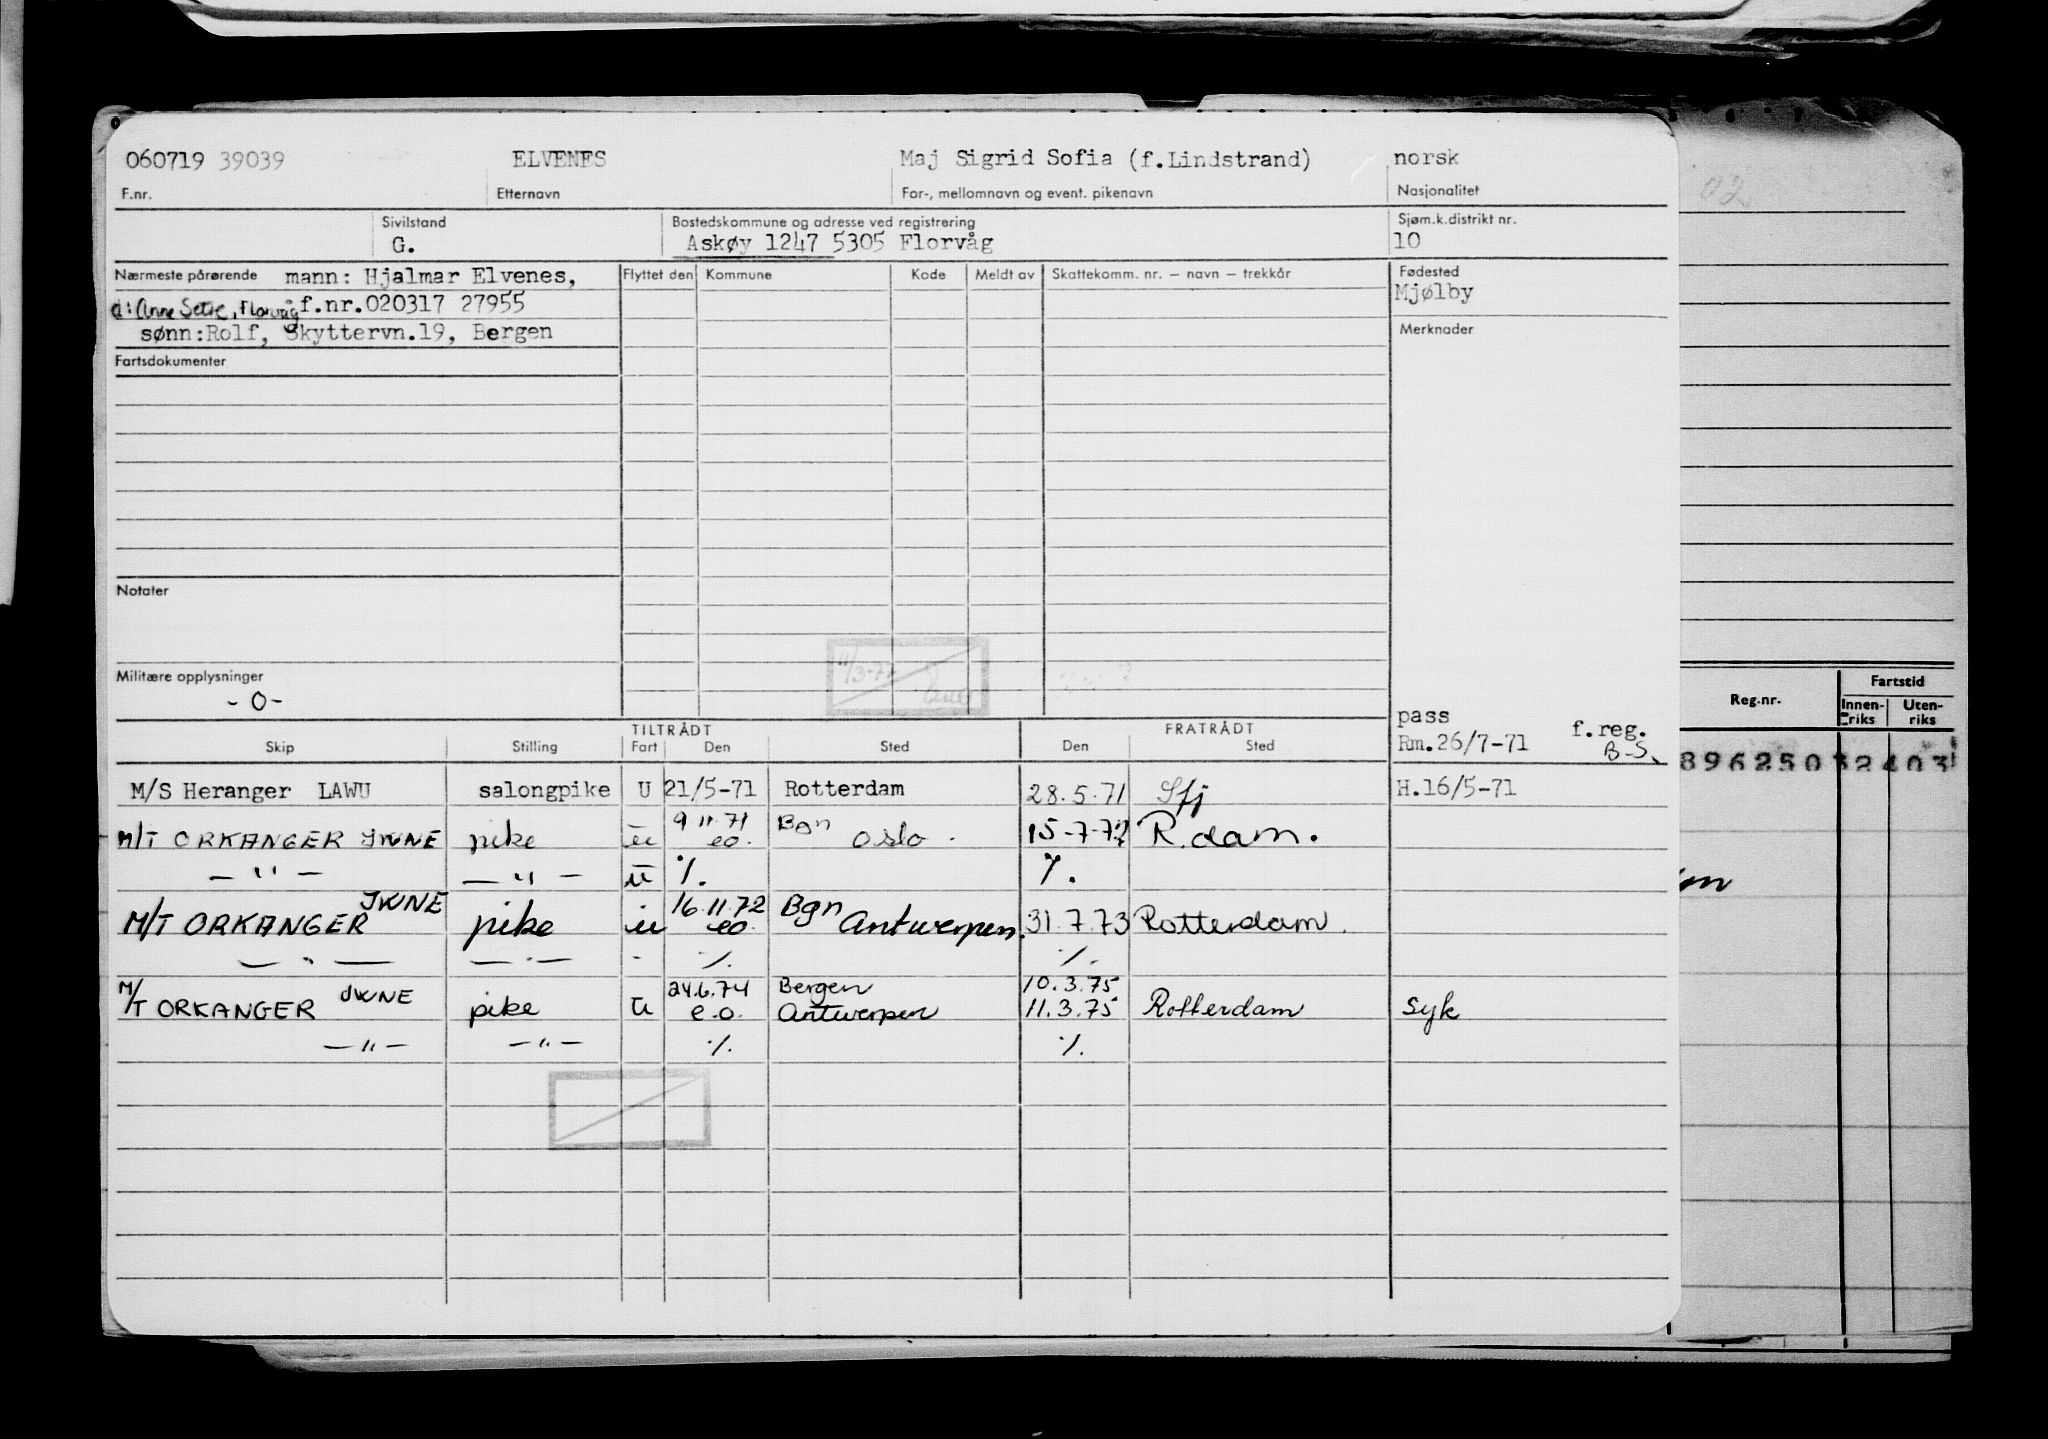 060719 39039 ELVENES Maj Sigrid Sofia (f.Lindstrand) norsk
F.nr. Etternavn For-, mellomnavn og event. pikenavn Nasjonalitet
Sivilstand Bostedskommune og adresse ved registrering Sjøm.k.distrikt nr.
G. Askøy 1247 5305 Florvåg 10
Nærmeste pårørende mann: Hjalmar Elvenes, Flyttet den Kommune Kode Meldt av Skattekomm. nr. — navn — trekkår Fødested
Mjølby
d: Anne Setre, Florvåg f.nr.020317 27955
sønn:Rolf, Skyttervn.19, Bergen Merknader
Fartsdokumenter
Notater
11/3-77
Militære opplysninger
- 0 -
pass f.reg.
Rm.26/7-71 B-S.
TILTRÅDT FRATRÅDT
Skip Stilling Fart Den Sted Den Sted
M/S Heranger LAWU salongpike U 21/5-71 Rotterdam 28.5.71 Sfj H.16/5-71
M/T ORKANGER JWNE pike u 9 11 71 eo. Bgn Oslo. 15-7-72 R.dam.
— " — — " — u ./. ./.
M/T ORKANGER JWNE pike u 16.11.72 eo. Bgn Antwerpen. 31.7.73 Rotterdam.
— " — — " — - ./. ./.
M/T ORKANGER JWNE pike u 24.6.74 e.o. Bergen Antwerpen 10.3.75 11.3.75 Rotterdam syk
— " — — " — ./. ./.
02
Reg.nr. Fartstid
Innen-riks Uten-riks